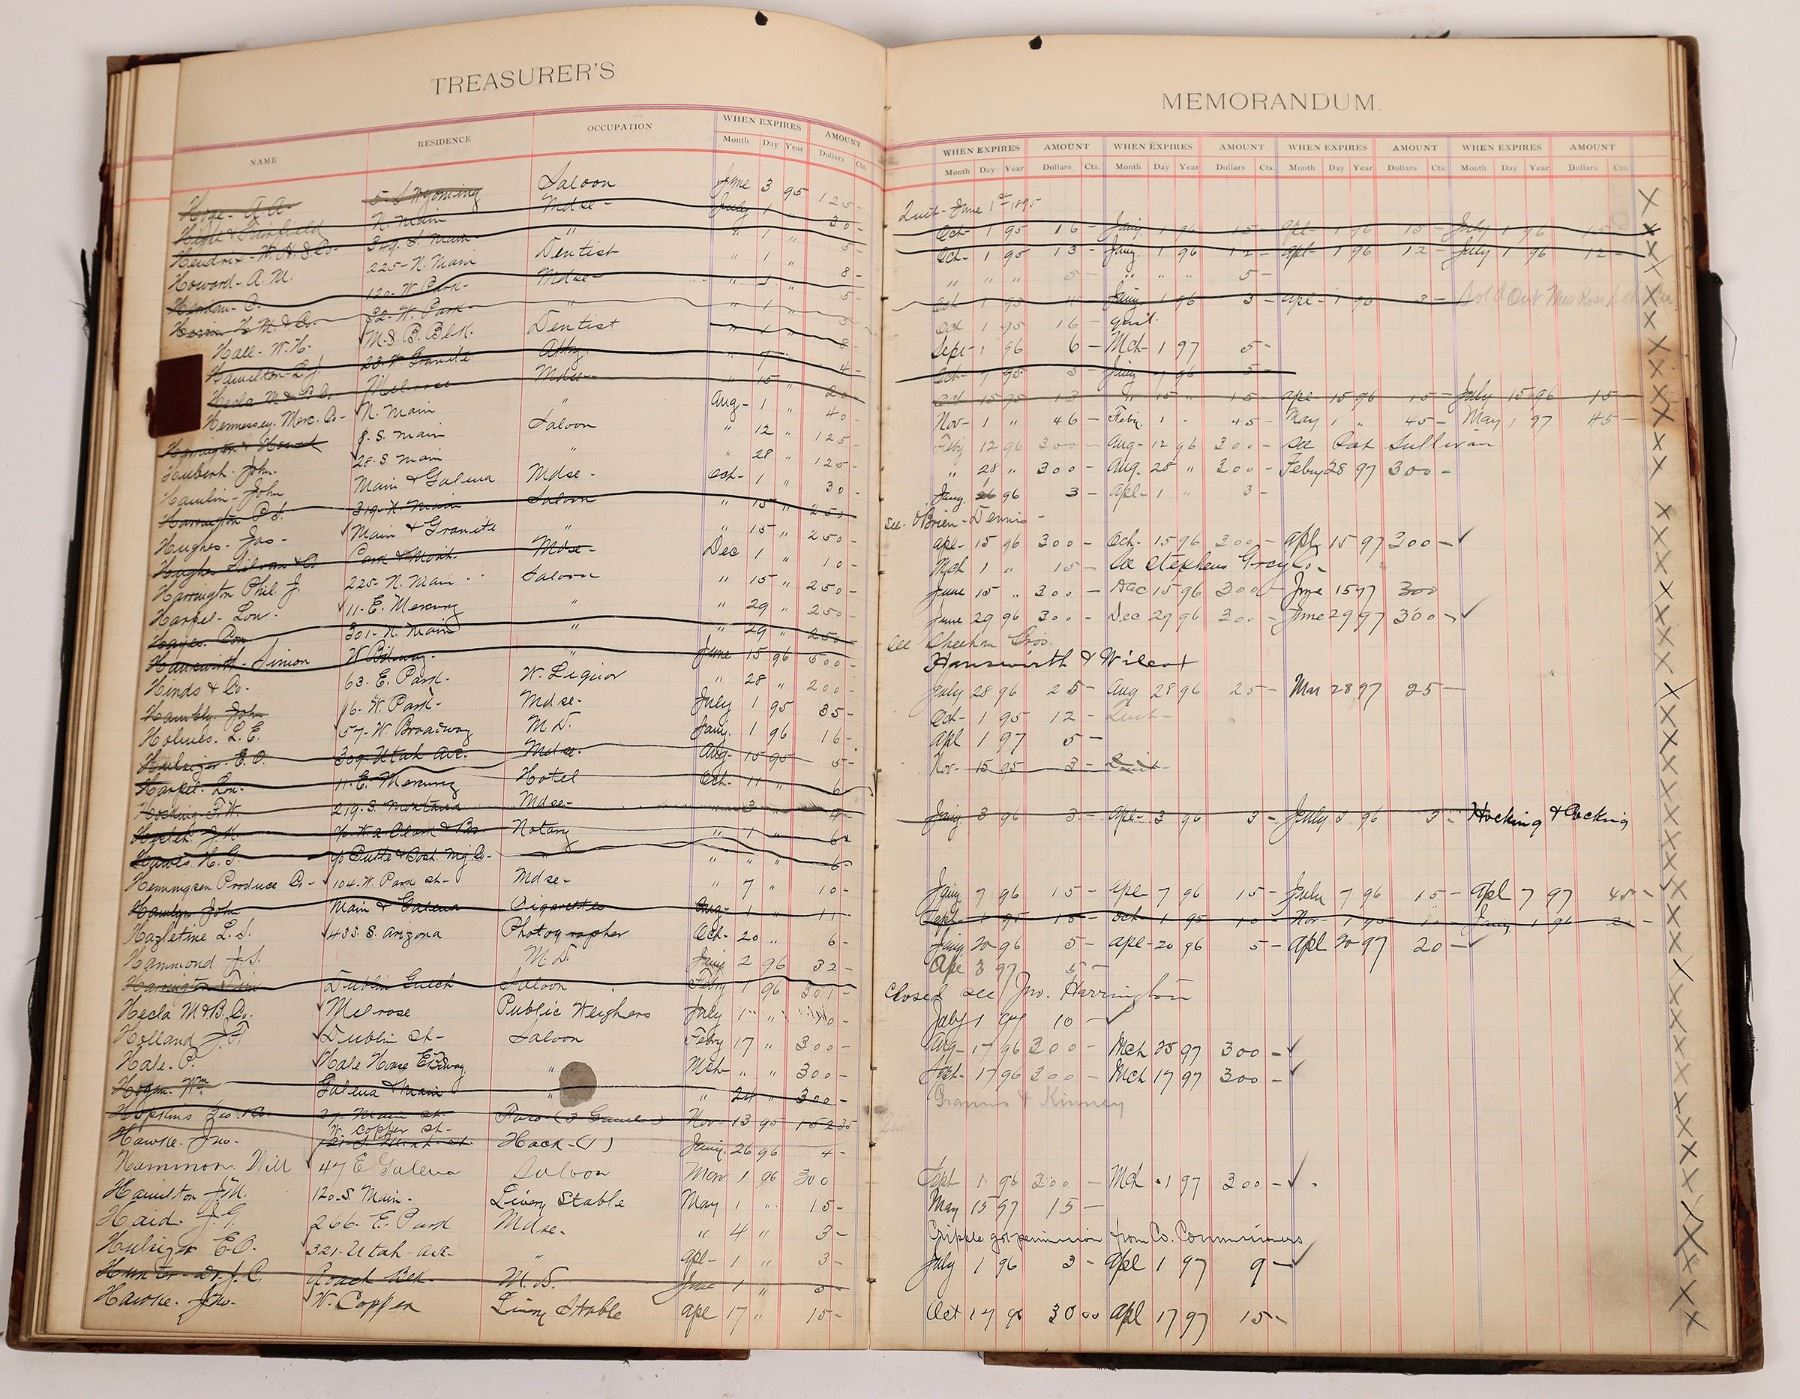 TREASURER'S
NAME RESIDENCE OCCUPATION WHEN EXPIRES AMOUNT
Month Day Year Dollars Cts.
Hoge - A. A. 5 - S Wyoming Saloon June 3 95 125 -
N. Main Mdse - July 1 " 30 -
Hendrix - W. H. & Co - 349. S. Main - " " 1 " 5 -
Howard - A. M. 225 - N. Main Dentist " 1 " 8 -
120 - W. Park - Mdse - " 1 " 5 -
32 - W. Park - " " 1 "
Hall - W. H. M. & B. Blk. Dentist " 1 " 8 -
Hamilton - 23. W Granite Atty. " 7 " 4 -
Hecla M & B Co. Melrose Mdse - " 15 " 20
Hennessy. Merc. Co - N. Main " Aug - 1 " 40 -
8. S. Main Saloon " 12 " 125 -
Hubert - John. 28. S Main " 28 " 125 -
Hamlin - John Main & Galena Mdse - Oct - 1 " 30 -
Harrington 319 - N Main Saloon " 15 " 250
Hughes - Jas - Main & Granite " " 15 " 250 -
Park & Mont. Mdse - Dec 1 " 10 -
Harrington Phil. J. 225 - N. Main Saloon " 15 " 250 -
Harpel - Lon - 11 - E. Mercury " " 29 " 250 -
Hayes - Con 301 - N. Main " " 29 " 250
Hauswirth - Simion W Bdway - " June 15 96 500 -
Hinds & Co - 63. E. Park - W. Liquor " 28 " 200 -
Hambly John 16 - W. Park - Mdse - July 1 95 35 -
Holmes. L. E. 57 - W. Broadway M. D. Jany. 1 96 16 -
Hulsizer - E. O. 309 - Utah Ave - Mdse - Aug - 15 95 5 -
Harpel - Lon - 11 - E. Mercury Hotel Oct - 11 " 6
Hocking. F. W. 219 - S. Montana Mdse - 3
c/o W. A. Clark & Bro - Notary " 1 " 6
Hawes H. G. c/o Butte & Bost. Mg Co - " " " " 6
Hennigsen Produce Co - 104 - W. Park St - Mdse - " 7 " 10 -
Hamlyn John Main & Galena Cigarettes Aug - 1 " 11 -
Hazletine L. S. 435. S. Arizona Photographer Oct - 20 " 6 -
Hammond J. S. M. D. Jany 2 96 32 -
Harrington Dublin Gulch Saloon Feby 1 96 301 -
Hecla M & B Co. Melrose Public Weighers July 1 "
Holland J. F. Dublin St - Saloon Feby 17 " 300 -
Hale - P. Hale House E Bdway " Mch - " " 300 -
Hogan - Wm Galena & Main " " 24 " 300 -
Hopkins Main St - Faro - (3 Games) Nov - 13 95
W. Copper St -
Hawke - Jno - Hack - (1) Jany. 26 96 4 -
Will 47 E Galena Saloon Mar 1 96 300
Hamilton J. M. 120. S. Main - Livery Stable May 1 " 15 -
Haid - J. G. 266 - E. Park Mdse. " 4 " 3 -
Hulsizer E. O. 321 - Utah ave - " Apl - 1 " 3 -
Hunter - Dr. J. C. Roach Blk. M. D. June 1 " 5 -
Hawke - Jno - W. Copper Livery Stable Apl 17 " 15 -
MEMORANDUM.
WHEN EXPIRES AMOUNT WHEN EXPIRES AMOUNT WHEN EXPIRES AMOUNT WHEN EXPIRES AMOUNT
Month Day Year Dollars Cts. Month Day Year Dollars Cts. Month Day Year Dollars Cts. Month Day Year Dollars Cts.
Quit - June 1st 1895
Oct - 1 95 16 - Jany 1 96 15 - Apl - 1 96 15 - July 1 96 15
Oct - 1 95 13 - Jany. 1 96 12 - Apl - 1 96 12 - July 1 96 12 -
" " " 5 - " " " 5 -
Oct 1 95 Jany 1 96 3 - Apl - 1 96 3 - Sold Out
Oct 1 95 16 - quit.
Sept - 1 96 6 - Mch - 1 97 5 -
Oct - 7 95 3 - Jany 7 96 5 -
Oct 15 95 13 - " 15 " 15 - Apl 15 96 15 - July 15 96 15 -
Nov - 1 " 46 - Feby. 1 " 45 - May 1 " 45 - May 1 97 45 -
Feby 12 96 300 - Aug - 12 96 300 - see Sullivan
" 28 " 300 - Aug. 28 " 300 - Feby 28 97 300 -
Jany 96 3 - Apl - 1 " 3 -
see - O'Brien - Dennis -
Apl - 15 96 300 - Oct - 15 96 300 - Apl 15 97 300 -
Mch 1 " 15 - See Stephens Gray Co -
June 15 " 300 - Dec 15 96 300 - June 15 97 300
June 29 96 300 - Dec 29 96 300 - June 29 97 300 -
see Sheehan Gros.
Hauswirth & Wilcox
July 28 96 25 - Aug 28 96 25 - Mar 28 97 25 -
Oct - 1 95 12 - Quit -
Apl 1 97 5 -
Nov - 15 95 3 - Quit -
Jany 3 96 3 - Apl - 3 96 3 - July 3 96 3 - Hocking & Cocking
Jany 7 96 15 - Apl 7 96 15 - July 7 96 15 - Apl 7 97 45 -
Sept 1 95 15 - Oct - 1 95 10 - Nov - 1 95 10 - Jany 1 96 20 -
Jany 20 96 5 - Apl - 20 96 5 - Apl 20 97 20 -
Apl 3 97 15 -
Closed see Jno. Harrington
July 1 97 10 -
Aug - 17 96 300 - Mch 25 97 300 -
Sept - 17 96 300 - Mch 17 97 300 -
Grannis & Kinney
Sept 1 96 300 - Mch 1 97 300 -
May 15 97 15 -
Cripple got permission from Co. Commissioners
July 1 96 3 - Apl 1 97 9 -
Oct 17 96 30 00 Apl 17 97 15 -